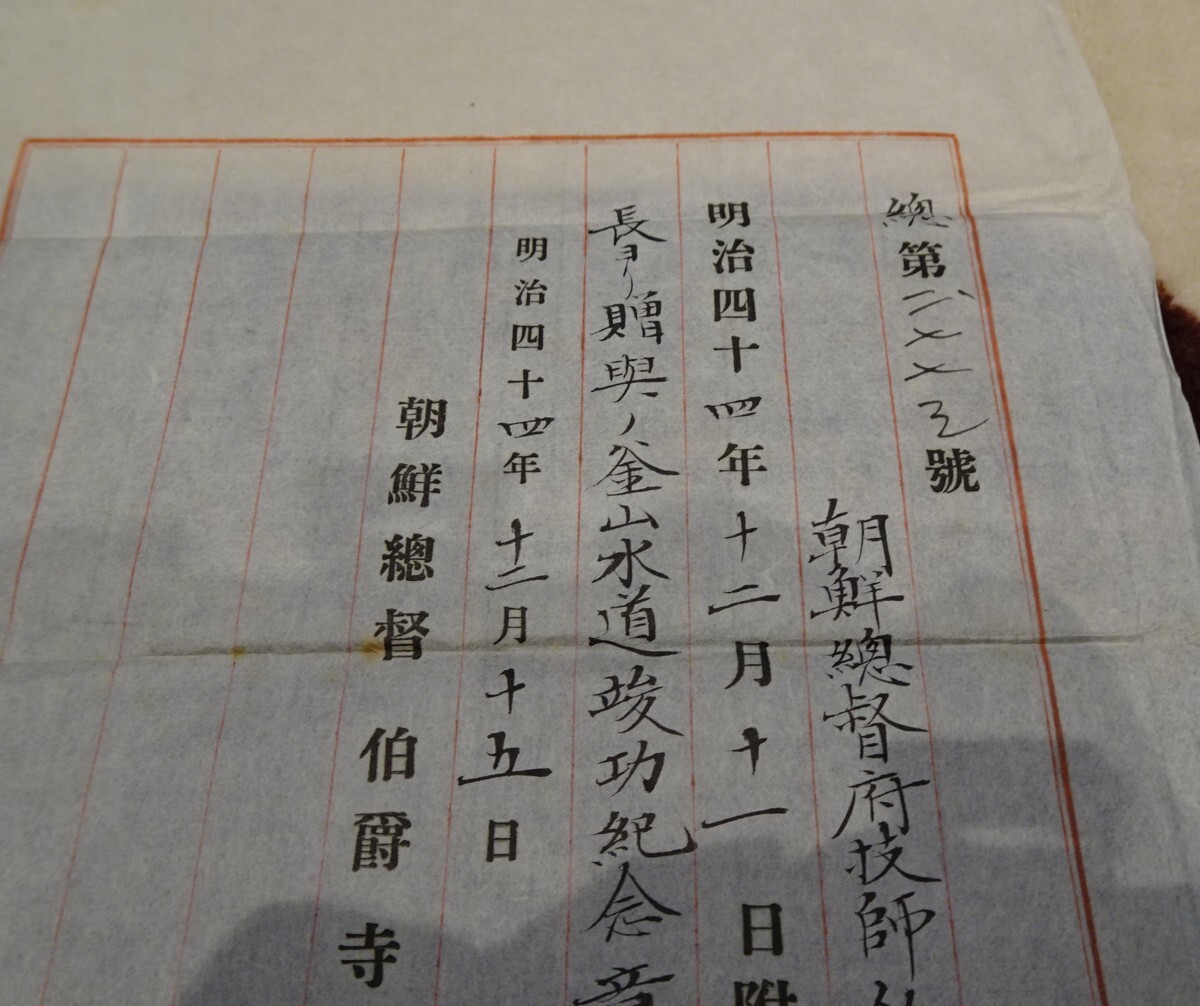 總第二七七三號
朝鮮總督府技師
明治四十四年十二月十一日附
長ヨリ贈與ノ釜山水道竣功紀念章
明治四十四年十二月十五日
朝鮮總督 伯爵 寺